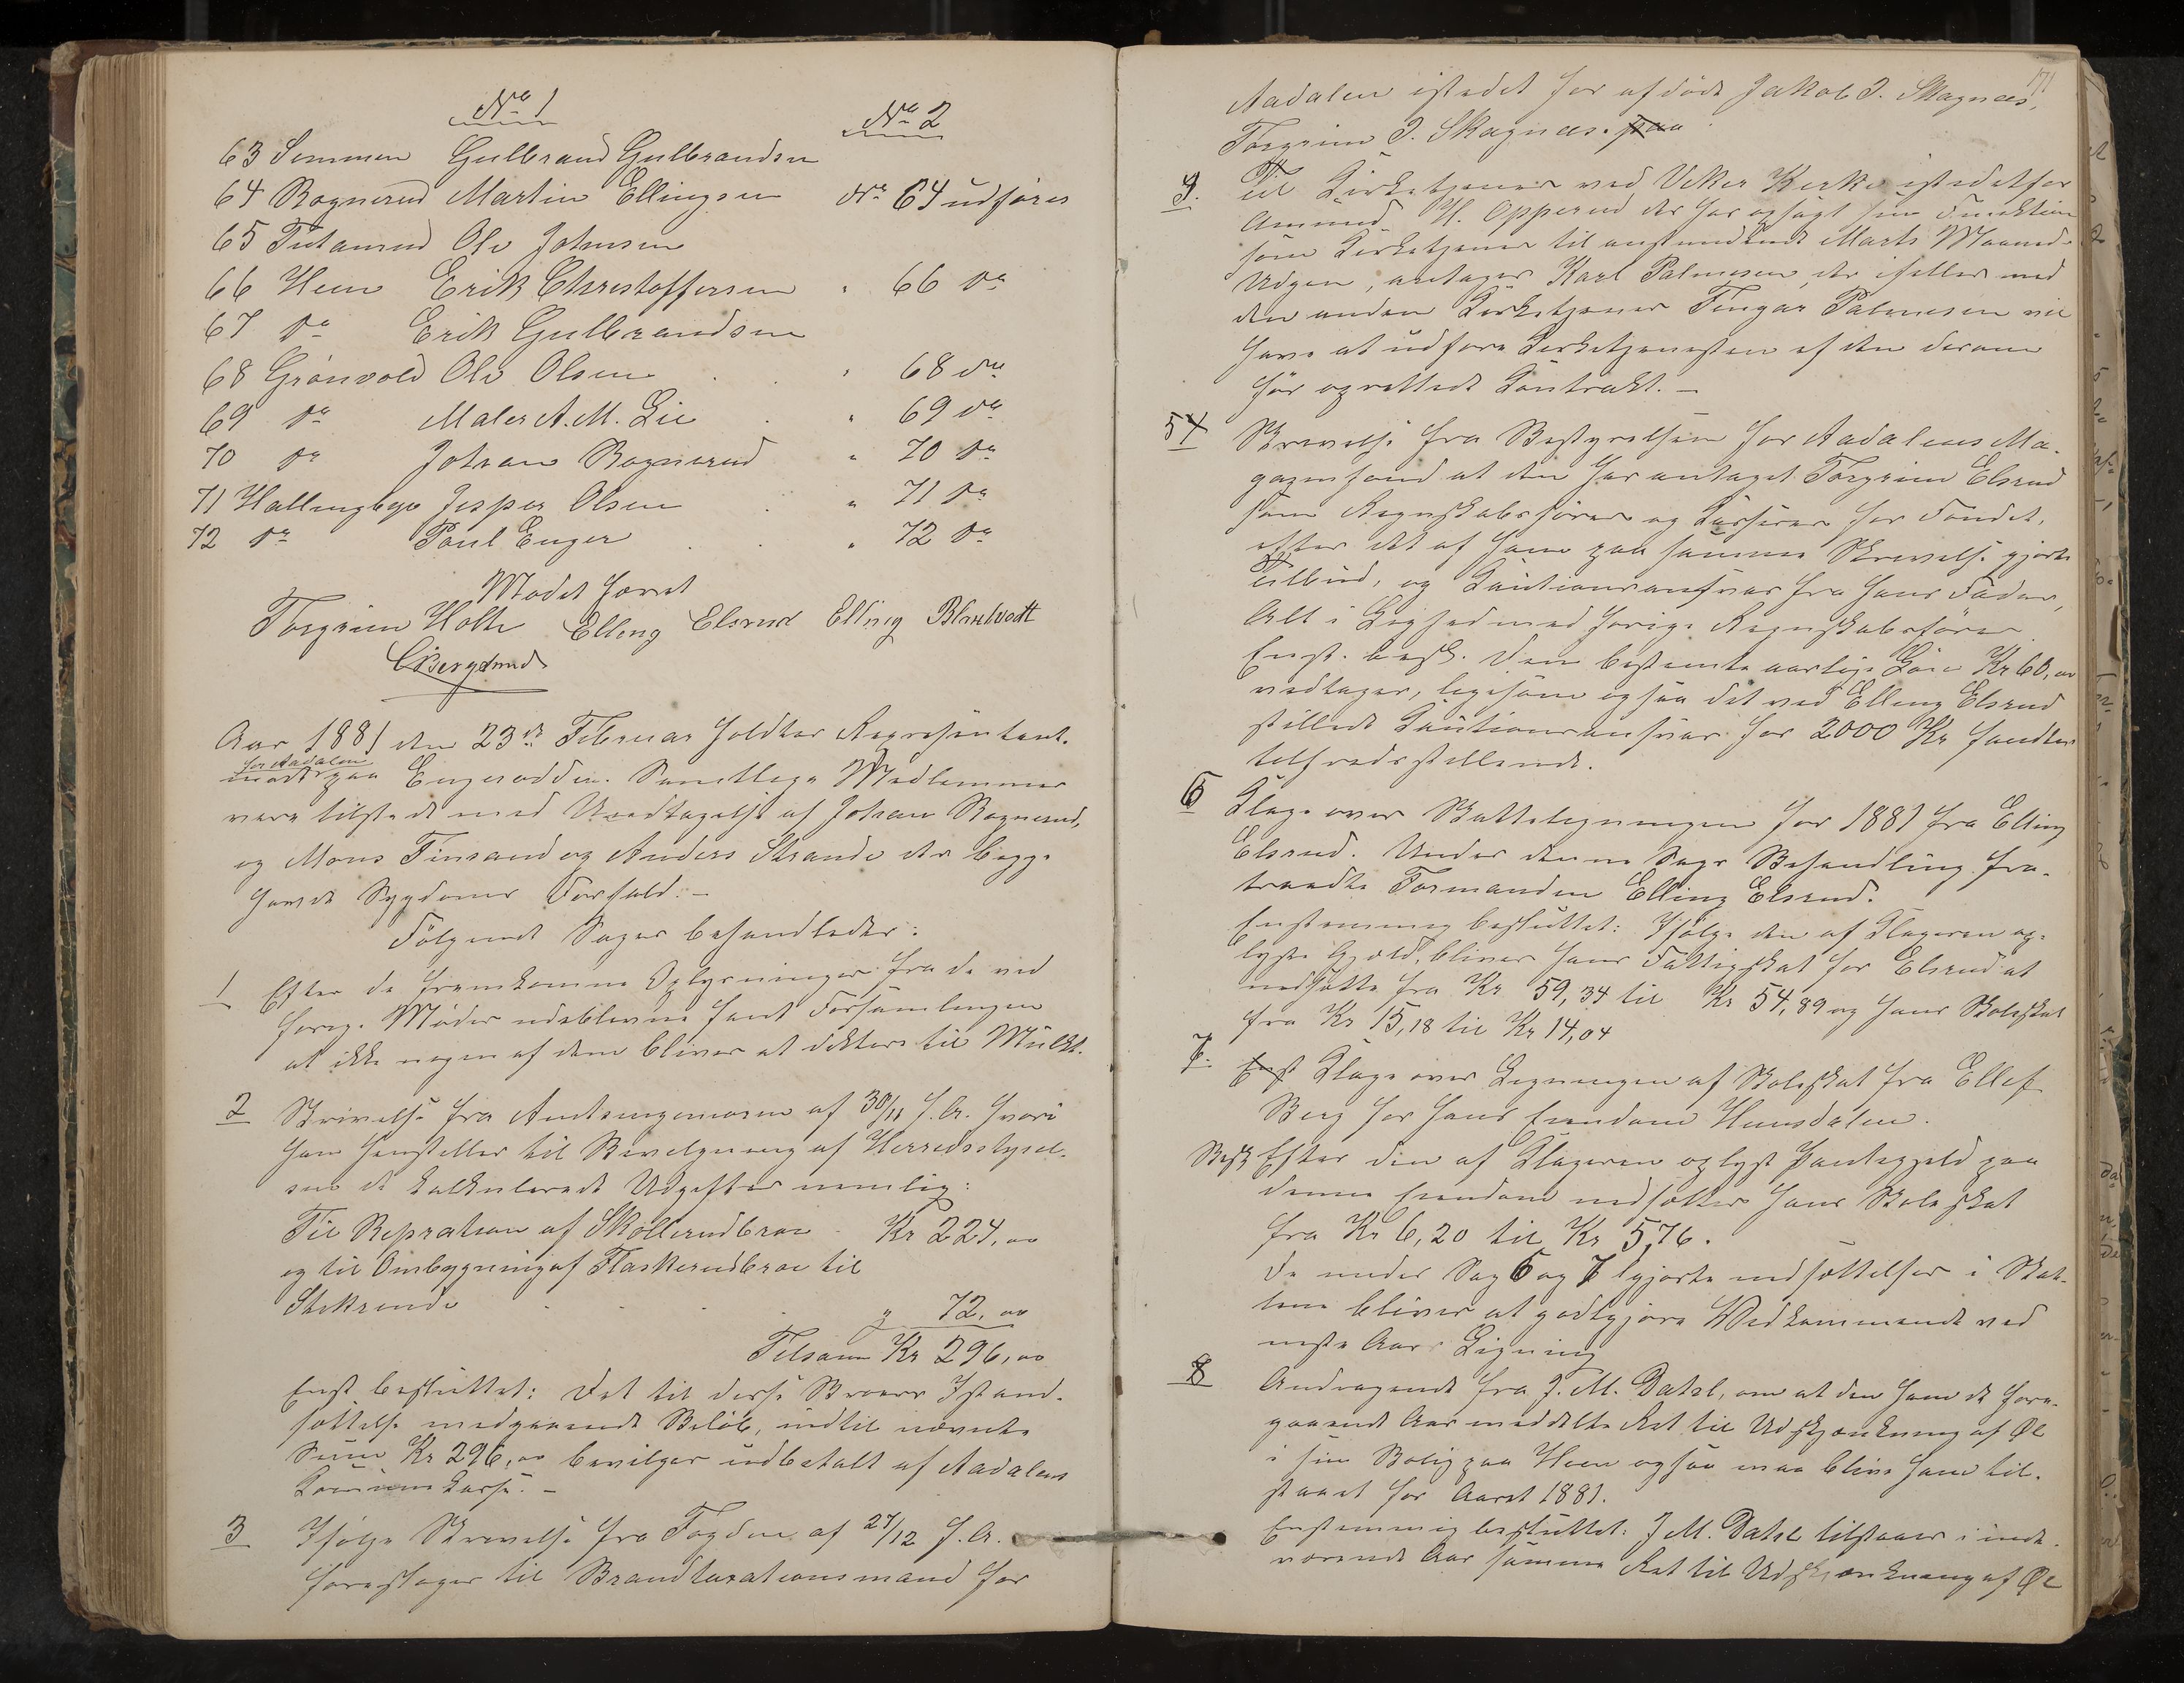 No 1
No 2
63 Semmen Gulbrand Gulbrandsen
64 Bognerud Martin Ellingsen No 64 udføres
65 Tutanrud Ole Johnsen
66 Heen Erik Christoffersen " 66 do
67 do Erik Gulbrandsen
68 Grønvold Ole Olsen " 68 do
69 do Maler A. M. Lie " 69 do
70 do Johan Bognerud " 70 do
71 Hallingbye Jesper Olsen " 71 do
72 do Paul Enger " 72 do
Mødet hævet
Torgrim Holte Elling Elsrud Elling Blakvedt
C Bergsund
Aar 1881 den 23de Februar holdtes Repræsentant-
for Aadalen
møde paa Engerodden. Samtlige Medlemmer
vare tilstede med Undtagelse af Johan Bognerud,
og Mons Finsand og Anders Strande der begge
havde Sygdoms Forfald. -
Følgende Sager behandledes:
1 Efter de fremkomne Oplysninger fra de ved
forrige Møder udeblevne fandt Forsamlingen
at ikke nogen af dem bliver at diktere til Mulkt.
2 Skrivelse fra Amtsingeniøren af 30/11 f. A. hvori
han henstiller til Bevilgning af Herredsstyrel-
sen de kalkulerede Udgifter nemlig:
Til Repration af Skollerudbroe Kr 224,00
og til Ombygning af Flaskerudbroe til
Stikrende " 72,00
Tilsam Kr 296,00
Enst besluttet: Det til disse Broers Istand-
sættelse medgaaende Beløb, indtil nævnte
Sum Kr 296,00 bevilges udbetalt af Aadalens
Kommunekasse. -
3 Ifølge Skrivelse fra Fogden af 27/12 f. A.
foreslaaes til Brandtaxationsmand for
171
Aadalen istedet for afdøde Jakob J. Skagnæs,
Torgrim J. Skagnæs. paa
4. Til Kirketjener ved Viker Kirke istedetfor
Amund H. Opperud der har opsagt sin Funktion
som Kirketjener til anstundende Marts Maaned-
Udgen, antages Karl Palmesen, der ifælles med
den anden Kirketjener Fingar Palmesen vil
have at udføre Kirketjenesten af den derom
før oprettede Kontrakt. -
5 Skrivelse fra Bestyrelsen for Aadalens Ma-
gazinfond at den har antaget Torgrim Elsrud
som Regnskabsfører og Kasserer for Fondet,
efter det af ham paa samme Skrivelse gjorte
Tilbud, og Kautionsansvar fra hans Fader,
Alt i Lighed med forrige Regnskabsfører.
Enst. besl. Den bestemte aarlige Løn Kr 60,00
vedtages, ligesom ogsaa det ved Elling Elsrud
stillede Kautionsansvar for 2000 Kr fandtes
tilfredsstillende.
6 Klage over Skatteligningen for 1881 fra Elling
Elsrud. Under denne Sags Behandling fra-
traadte Formanden Elling Elsrud.
Enstemmig besluttet: Ifølge den af Klageren op-
lyste Gjæld, bliver hans Fattigskat for Elsrud at
nedsætte fra Kr 59,34 til Kr 54,89 og hans Skoleskat
fra Kr 15,18 til Kr 14,04
7. Enst Klage over Ligningen af Skoleskat fra Ellef
Berg for hans Eiendom Hunsdalen.
Besl Efter den af Klageren oplyst Pantegjeld paa
denne Eiendom nedsættes hans Skoleskat
fra Kr 6,20 til Kr 5,76.
De under Sag 6 og 7 gjorte nedsættelser i Skat-
tene bliver at godtgjøre Vedkommende ved
næste Aars Ligning
8 Andragende fra J. M. Dahl, om at den ham de fore-
gaaende Aar meddelte Ret til Udskjænkning af Øl
i sin Bolig paa Heen ogsaa maa blive ham til-
staaet for Aaret 1881.
Enstemmig besluttet: J M. Dahl tilstaaes i inde-
værende Aar samme Ret til Udskjænkning af Øl